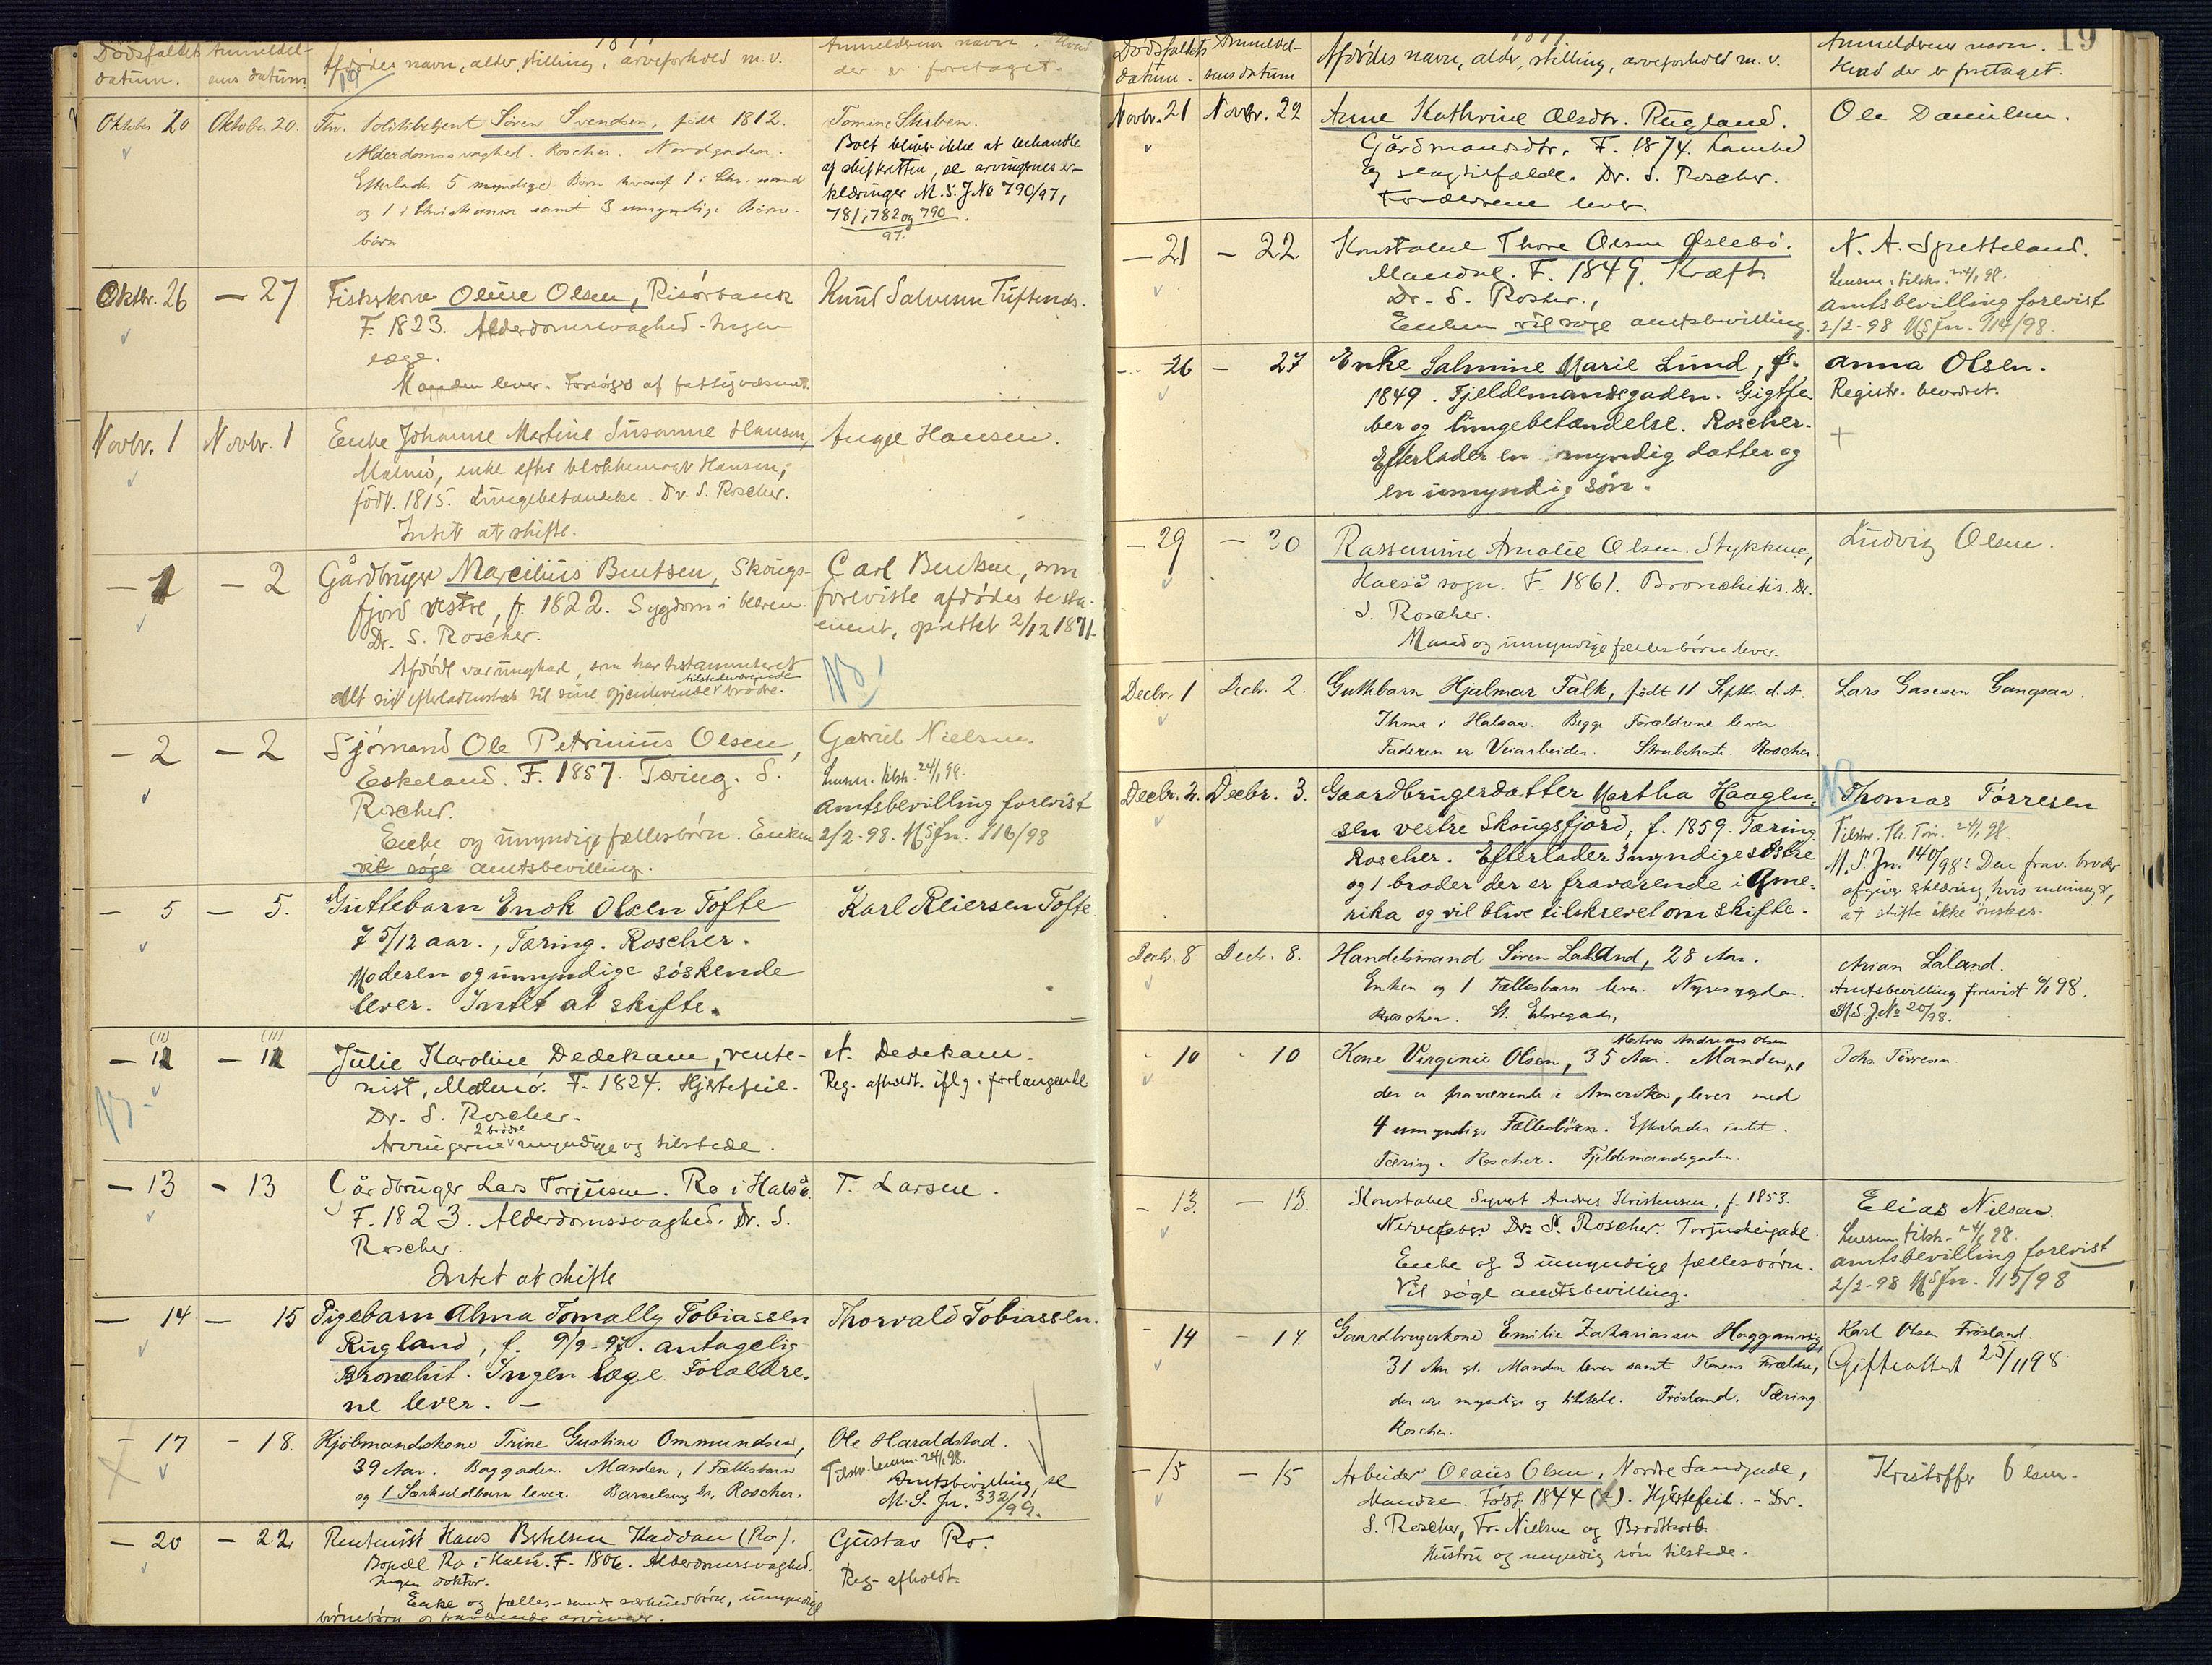 1897
Dödsfaldets Anmeldel- Afdödes navn, alder, stilling, arveforhold m.v. Anmelderens navn. Hvad
datum. sens datum. der er foretaget.
Oktober 20 Oktober 20. Fhv. Politibetjent Sören Svendsen, födt 1812. Tomine Stuben.
Alderdomssvaghed. Roscher. Nordgaden. Boet bliver ikke at behandle
Efterlader 5 myndige Börn hvoraf 1 i Chr. sand af skifteretten, se arvingernes er-
og 1 i Christiania samt 3 umyndige Börne- klæringer M.S.J.No 790/97,
börn 781, 782 og 790
97.
Oktbr. 26 — 27 Fiskerkone Oline Olsen, Risörbank Knud Salvesen Tuftenes.
F. 1823. Alderdomssvaghed. Ingen
læge.
Manden lever. Forsörges af fattigvæsenet.
Novbr. 1 Novbr. 1 Enke Johanne Martine Susanne Hansen, Augé Hansen.
Malmö, enke efter blokkemager Hansen,
födt. 1815. Lungebetændelse. Dr. S. Roscher.
Intet at skifte.
— 1 — 2 Gårdbruger Marcilius Bentsen, Skougs- Carl Bentsen, som
fjord vestre, f. 1822. Sygdom i blæren. foreviste afdödes testa-
Dr. S. Roscher. ment, oprettet 2/12 1871.
Afdöde var ungkarl, som har testamenteret NB!
tilstedeværende
alt sit efterladenskab til sine gjenlevende brödre.
— 2 — 2 Sjömand Ole Petrinius Olsen, Gabriel Nielsen.
Eskeland. F. 1857. Tæring. S. Lensm. tilskr. 24/1 98.
Roscher. Amtsbevilling forevist
Enke og umyndige fællesbörn. Enken 2/2-98. MSJn. 116/98
vil söge amtsbevilling.
— 5 — 5. Guttebarn Enok Olsen Tofte Karl Reiersen Tofte
7 5/12 aar., Tæring. Roscher.
Moderen og umyndige söskende
lever. Intet at skifte.
(11) (11)
— 12 — 12 Julie Karoline Dedekam, rente- A. Dedekam.
nist, Malmö. F. 1824. Hjertefeil. Reg. afholdt iflg. forlangende
NB Dr. S. Roscher.
2 brödre
Arvingerne myndige og tilstede.
— 13 — 13 Gårdbruger Lars Torjusen. Ro i Halså. T. Larsen.
F. 1823. Alderdomssvaghed. Dr. S.
Roscher.
Intet at skifte
— 14 — 15 Pigebarn Alma Tomally Tobiassen Thorvald Tobiassen.
Rugland, f. 9/9-97. antagelig
Bronchit. Ingen læge. Forældre-
ne lever. —
— 17 — 18. Kjöbmandskone Trine Gustine Ommundsen, Ole Haraldstad.
39 Aar. Baggaden. Manden, 1 Fællesbarn Tilskr. lensm. 24/1 98.
og 1 Særkuldbarn lever. Barselseng Dr. Roscher. Amtsbevilling, se
M.S. Jn. 332/99.
— 20 — 22. Rentenist Hans Bertelsen Haddan (Ro). Gustav Ro.
Bopæl Ro i Halså. F. 1806. Alderdomssvaghed.
Ingen doktor. Reg. afholdt.
Enke og fælles- samt særkuldbörn, umyndige
börnebörn og fraværende arvinger.
1897. 19
Dödsfaldets Anmeldel- Afdödes navn, alder, stilling, arveforhold m.v. Anmelderens navn.
datum. sens datum Hvad der er foretaget.
Novbr. 21 Novbr. 22 Anne Kathrine Olsdtr. Rugland. Ole Danielsen.
Gårdmandsdtr. F. 1874. Lamhed
og slagtilfælde. Dr. S. Roscher.
Forældrene lever.
— 21 — 22 Konstabel Thore Olsen Öslebö. N. A. Spetteland.
Mandal. F. 1849. Kræft. Lensm. tilskr. 24/1 98.
Dr. S. Roscher. Amtsbevilling forevist
Enken vil söge amtsbevilling. 2/2-98 MSJn. 114/98.
— 26 — 27 Enke Salmine Marie Lund, f. Anna Olsen.
1849. Fjeldemandsgaden. Gigtfe- Registr. beordret.
ber og lungebetændelse. Roscher.
Efterlader en myndig datter og
en umyndig sön.
— 29 — 30 Rassemine Amalie Olsen. Stykkene, Ludvig Olsen.
Halså sogn. F. 1861. Bronchitis. Dr.
S. Roscher.
Mand og umyndige fællesbörn lever.
Decbr. 1 Decbr. 2. Guttebarn Hjalmar Falk, födt 11 Septbr. d.A. Lars Gasesen Gangsaa.
Ihme i Halsaa. Begge Forældrene lever.
Faderen er Veiarbeider. Strubehoste. Roscher.
Decbr. 2. Decbr. 3. Gaardbrugerdatter Martha Haagen- NB Thomas Törresen
sen vestre Skougsfjord, f. 1859. Tæring. Tilskr. Th. Törr. 24/1 98.
Roscher. Efterlader 3 myndige söstre M.S.Jn. 140/98! Den frav. broder
og 1 broder der er fraværende i Ame- afgiver erklæring, hvis mening er,
rika og vil blive tilskrevet om skifte. at skifte ikke önskes.
Decbr. 8 Decbr. 8. Handelsmand Sören Laland, 28 Aar. Arian Laland.
Enken og 1 Fællesbarn lever. Nyresygdom. Amtsbevilling forevist 4/1 98.
Roscher. St. Elvegade. M.S.J.No 20/98.
- 10 - 10 Kone Virginie Olsen, 35 Aar. Manden, Johs. Törresen
der er fraværende i Amerika, lever med
4 umyndige Fællesbörn. Efterlader intet.
Tæring. Roscher. Fjeldemandsgaden.
— 13. — 13. Konstabel Syvert Andreas Kristensen, f. 1853. Elias Nilsen.
Nervefeber. Dr. S. Roscher. Torjusheigade. Lensm. tilskr. 24/1 98.
Enke og 3 umyndige fællesbörn. Amtsbevilling forevist
Vil söge amtsbevilling. 2/2-98 MSJn. 115/98
- 14 - 14. Gaardbrugerkone Emilie Zahariassen Hogganvig, Karl Olsen Frösland.
31 Aar gl. Manden lever samt Konens Forældre, Gifteattest 25/1 98
der ere myndige og tilstede. Frösland. Tæring.
Roscher.
— 15 — 15 Arbeider Olaus Olsen, Nordre Sandgade, Kristoffer Olsen.
Mandal. Födt 1844 (?). Hjertefeil. - Dr.
S. Roscher, Fr. Nielsen og Brodtkorb.
Hustru og myndig sön tilstede.